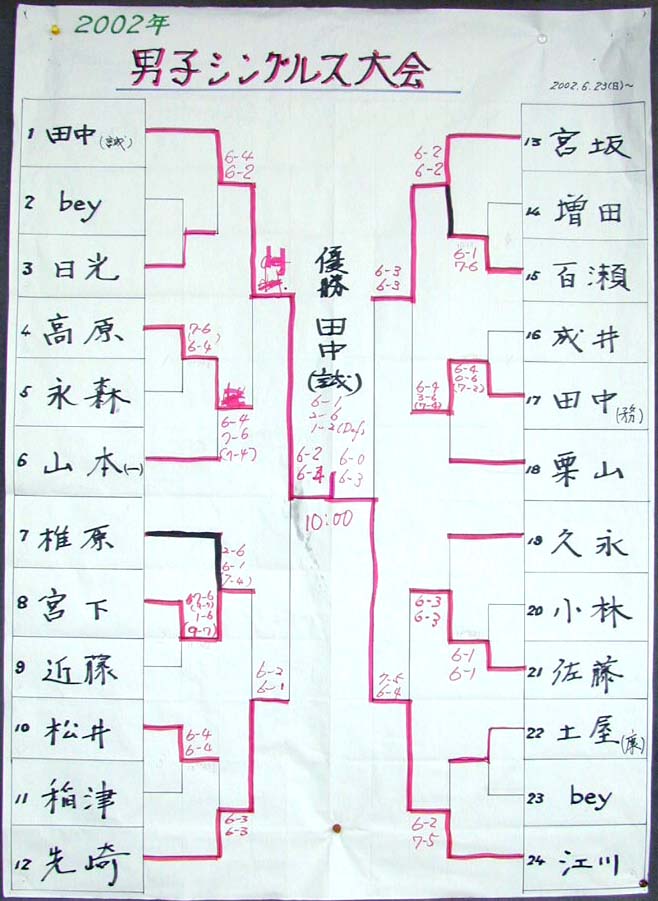 2002年
男子シングルス大会
2002.6.29(日)~
1 田中(誠)
2 bey
3 日光
4 高原
5 永森
6 山本(一)
7 椎原
8 宮下
9 近藤
10 松井
11 稲津
12 先崎
6-4
6-2
(7-6
6-4)
6-4
7-6
(7-4)
2-6
6-1
(7-4)
1-6
(9-7)
6-2
6-1
6-4
6-4
6-3
6-3
優勝
田中(誠)
6-1
2-6
1-2(Def)
6-2
6-0
6-3
10:00
6-2
6-2
6-3
6-3
6-1
7-6
6-4
3-6
(7-4)
6-4
0-6
(7-2)
6-3
6-3
6-1
6-1
7-5
6-4
6-2
7-5
13 宮坂
14 増田
15 百瀬
16 成井
17 田中(務)
18 栗山
19 久永
20 小林
21 佐藤
22 土屋(康)
23 bey
24 江川